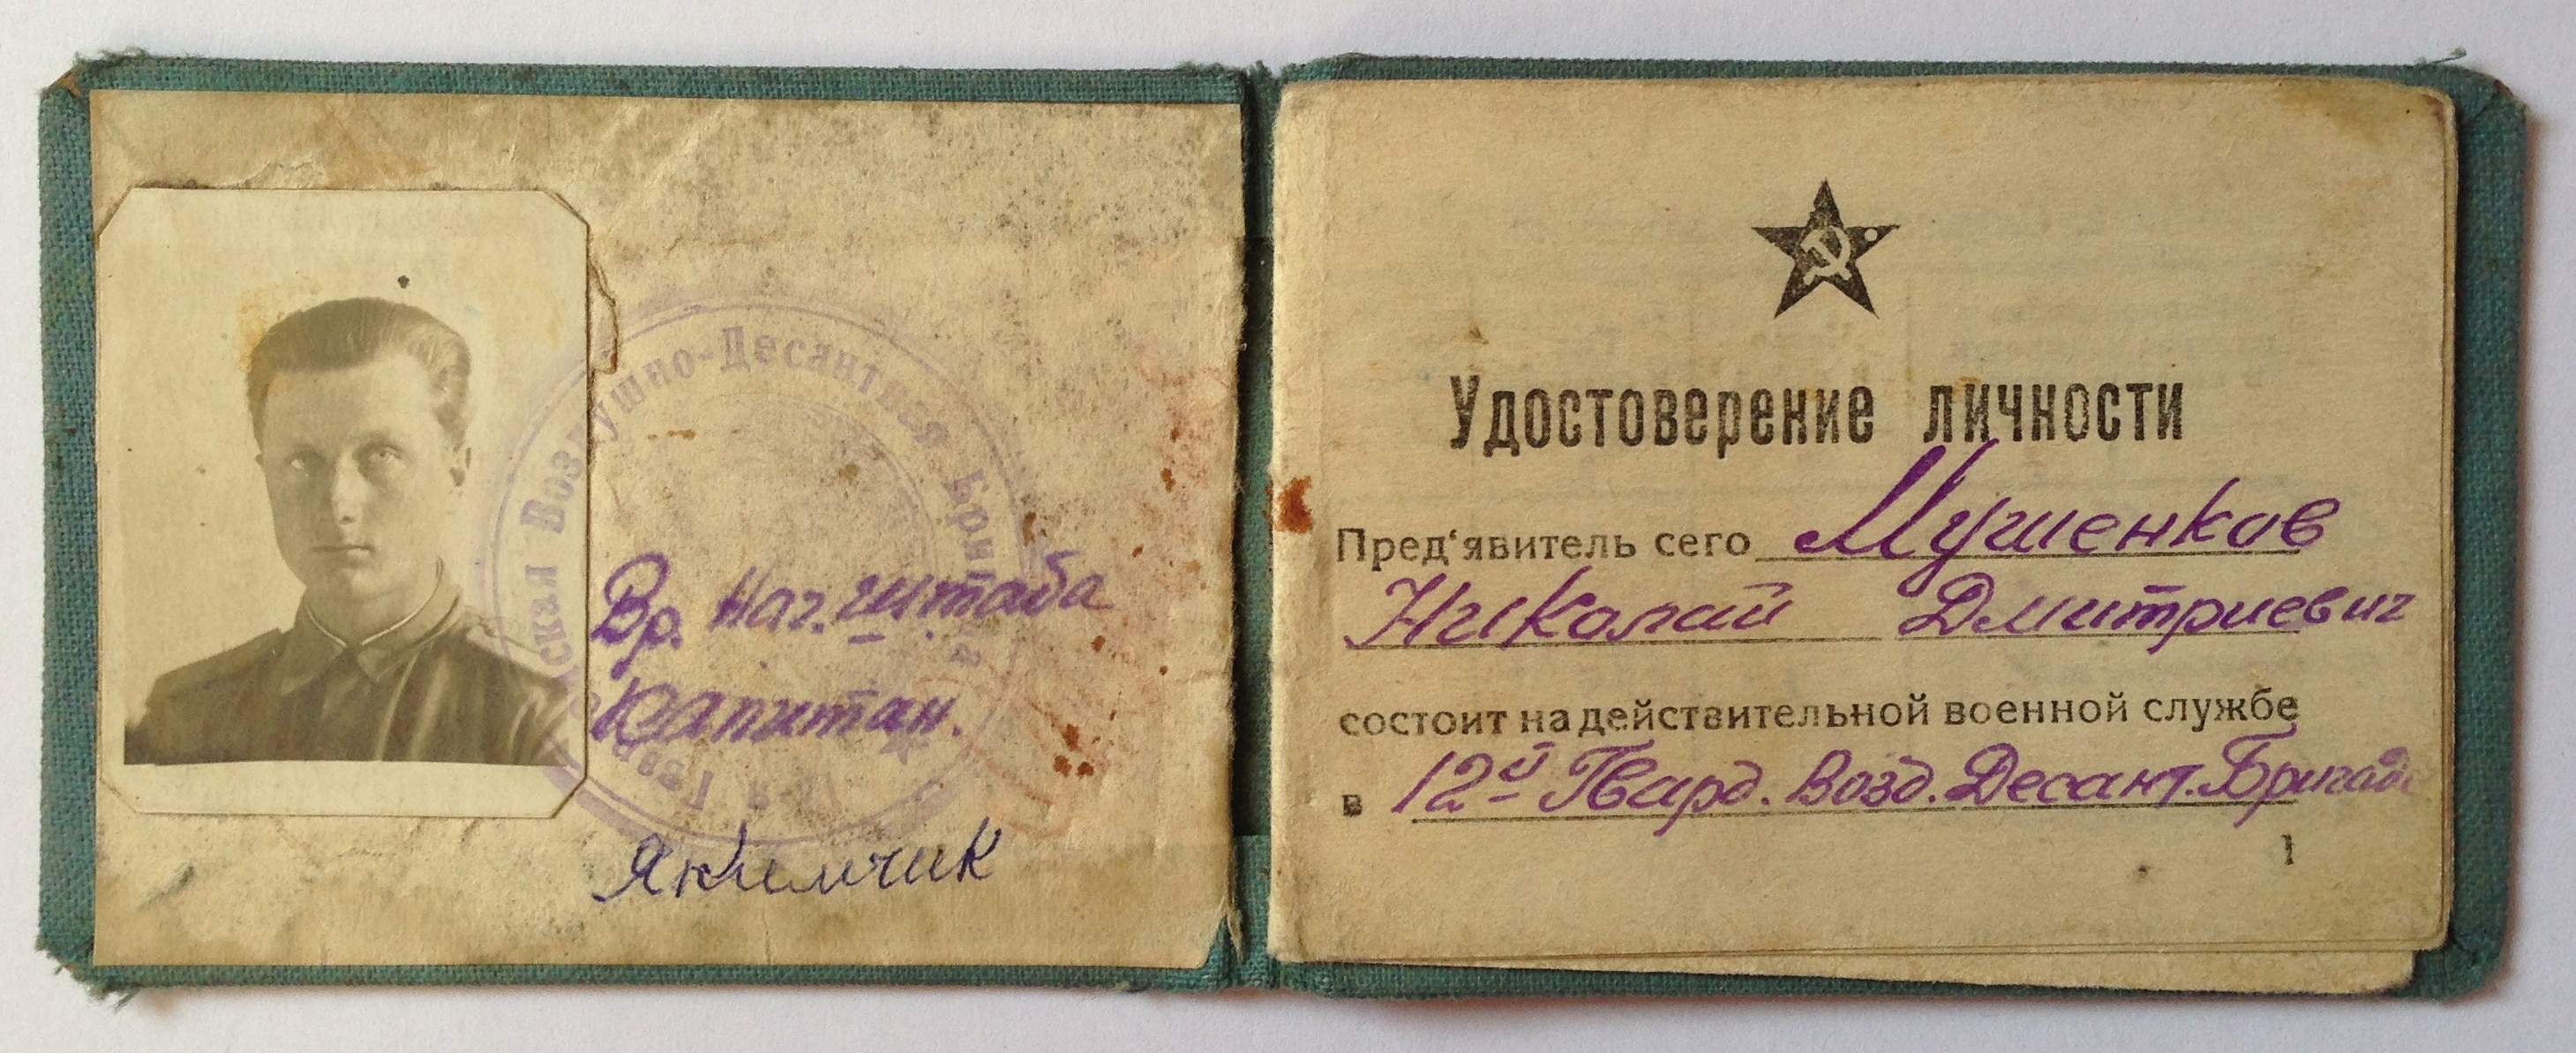 ская Воздушно-Десантная Бригада
Вр. нач. штаба
Капитан.
Якимчик
Удостоверение личности
Пред'явитель сего Мушенков
Николай Дмитриевич
состоит на действительной военной службе
в 12й Гвард. Возд. Десант. Бригаде
1